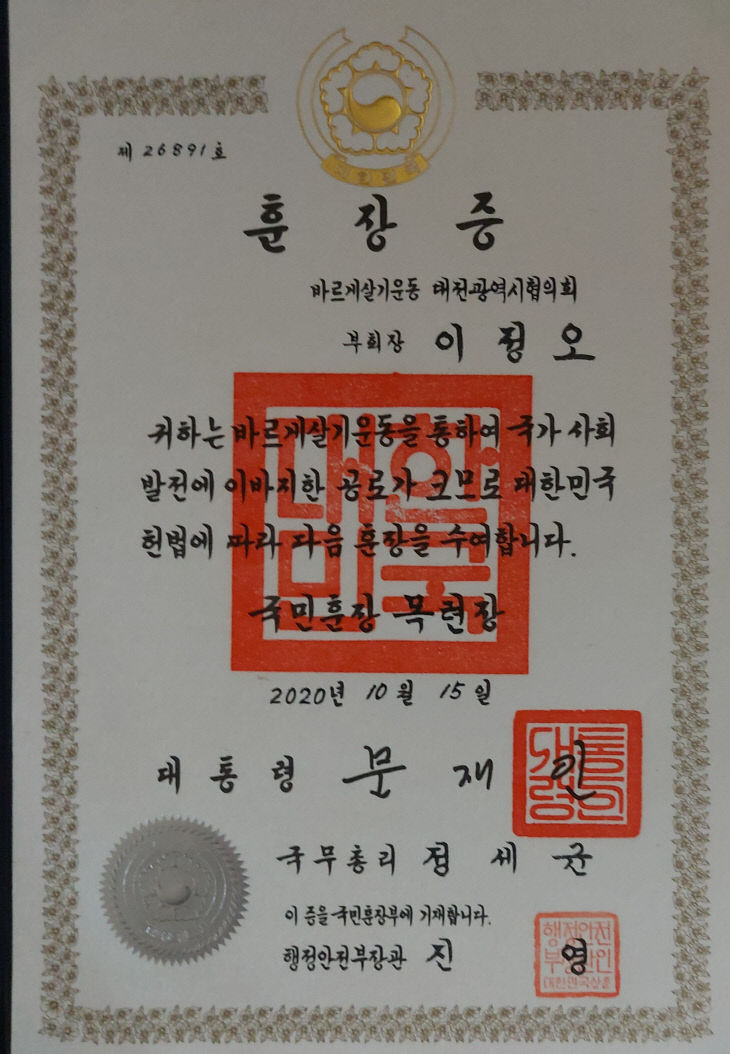 대한민국
제 26891 호
훈장증
바르게살기운동 대전광역시협의회
부회장 이정오
귀하는 바르게살기운동을 통하여 국가 사회
발전에 이바지한 공로가 크므로 대한민국
헌법에 따라 다음 훈장을 수여합니다.
국민훈장 목련장
2020년 10월 15일
대통령 문재인
대통령의인
국무총리 정세균
이 증을 국민훈장부에 기재합니다.
행정안전부장관 진영
행정안전
부장관인